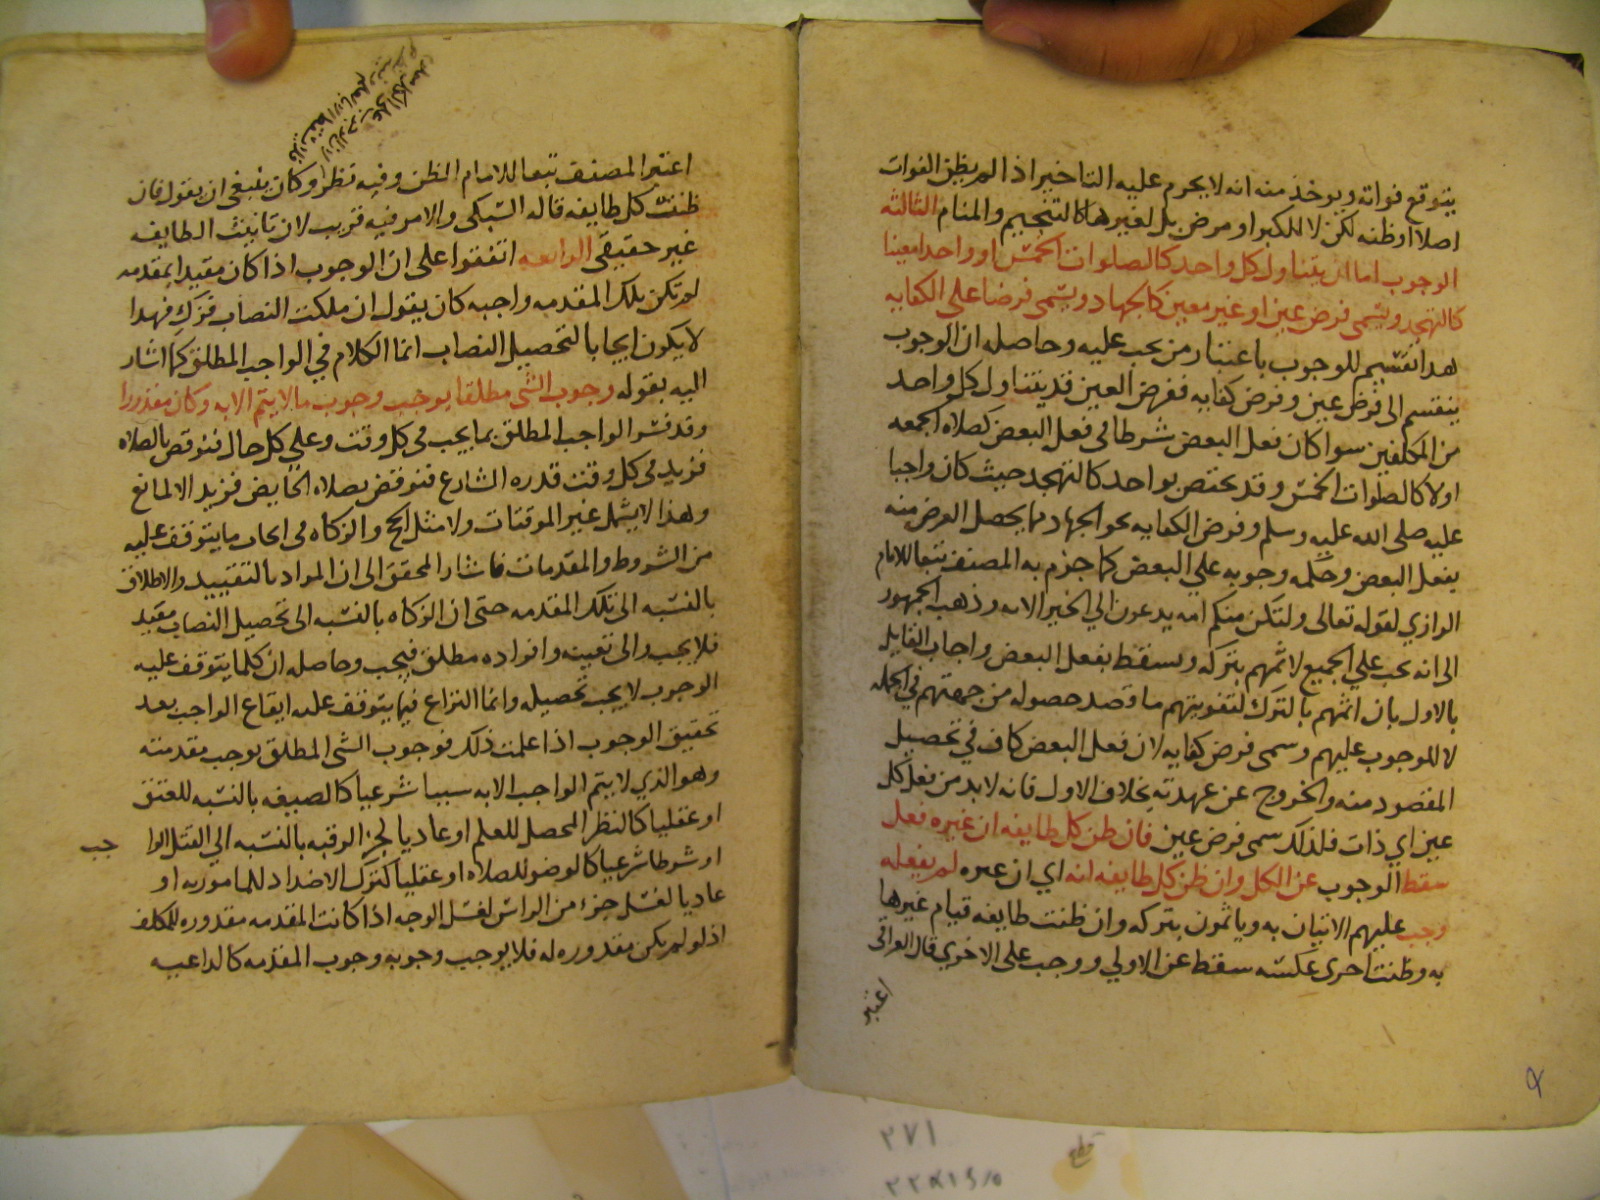 يتوقع فواته ويوخذ منه انه لا يحرم عليه التاخير اذا لم يظن الفوات
اصلا او ظنه لكن لا للكبر او مرض بل لغيرها كالتنجيم والمنام الثالثه
الوجوب اما ان يتناول كل واحد كالصلوات الخمس او واحدا معينا
كالتهجد ويسمى فرض عين او غير معين كالجهاد ويسمى فرضا على الكفايه
هدا تقسيم للوجوب باعتبار من يجب عليه وحاصله ان الوجوب
ينقسم الى فرض عين وفرض كفايه ففرض العين قد يتناول كل واحد
من المكلفين سوا كان فعل البعض شرطا في فعل البعض كصلاه الجمعه
اولا كالصلوات الخمس وقد يختص بواحد كالتهجد حيث كان واجبا
عليه صلى الله عليه وسلم وفرض الكفايه نحو الجهاد مما يحصل الغرض منه
بفعل البعض وحكمه وجوبه على البعض كما جزم به المصنف تبعا للامام
الرازي لقوله تعالى ولتكن منكم امه يدعون الي الخير الايه وذهب الجمهور
الى انه يجب علي الجميع لاثمهم بتركه ويسقط بفعل البعض واجاب القايل
بالاول بان اثمهم بالترك لتفويتهم ما قصد حصوله من جهتهم في الجمله
لا للوجوب عليهم وسمى فرض كفايه لان فعل البعض كاف في تحصيل
المقصود منه والخروج عن عهدته بخلاف الاول فانه لابد من فعل كل
عين اي ذات فلذلك سمى فرض عين فان ظن كل طايفه ان غيره فعل
سقط الوجوب عن الكل وان ظن كل طايفه انه اي ان غيره لم يفعله
وجب عليهم الاتيان به وياثمون بتركه وان ظنت طايفه قيام غيرها
به وظنت اخرى عكسه سقط عن الاولي ووجب على الاخري قال العراقى
اعتبر
اعتبر المصنف تبعا للامام الظن وفيه نظر وكان ينبغي ان يقول فان
ظنت كل طايفه قاله السبكى والامر فيه قريب لان تانيث الطايفه
غير حقيقي الرابعه اتفقوا على ان الوجوب اذا كان مقيدا بمقدمه
لم تكن تلك المقدمه واجبه كان يقول ان ملكت النصاب فزك فهدا
لا يكون ايجابا لتحصيل النصاب انما الكلام في الواجب المطلق كما اشار
اليه بقوله وجوب الشى مطلقا يوجب وجوب ما لا يتم الا به وكان مقدورا
وقد فسر الواجب المطلق بما يجب في كل وقت وعلى كل حال فنوقض بالصلاه
فزيد في كل وقت قدره الشارع فنوقض بصلاه الحايض فزيد الا لمانع
وهذا لا يشمل غير الموقتات ولا مثل الحج والزكاه في ايجاب ما يتوقف عليه
من الشروط والمقدمات فاشار المحقق الى ان المراد بالتقييد والاطلاق
بالنسبه الى تلك المقدمه حتى ان الزكاه بالنسبه الى تحصيل النصاب مقيد
فلا يجب والى تعيينه وافراده مطلق فيجب وحاصله ان كلما يتوقف عليه
الوجوب لا يجب تحصيله وانما النزاع فيما يتوقف عليه ايقاع الواجب بعد
تحقيق الوجوب اذا علمت ذلك فوجوب الشى المطلق يوجب مقدمته
وهو الذي لا يتم الواجب الا به سببا شرعيا كالصيغه بالنسبه للعتق
او عقليا كالنظر المحصل للعلم او عاديا لحز الرقبه بالنسبه الي القتل الوا جب
او شرطا شرعيا كالوضو للصلاه او عقليا كترك الاضداد للمامور به او
عاديا لغسل جزء من الراس لغسل الوجه اذا كانت المقدمه مقدوره للمكلف
اذ لو لم يكن مقدوره له فلا يوجب وجوبه وجوب المقدمه كالداعيه
٢٧١